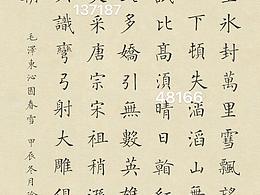 冰封萬里雪飄望
下頓失滔滔山
比高湏晴日紅
多嬌引無數英雄
采唐宗宋祖稍遜
識彎弓射大雕俱
毛澤東沁園春雪 甲辰冬月
137187
48166